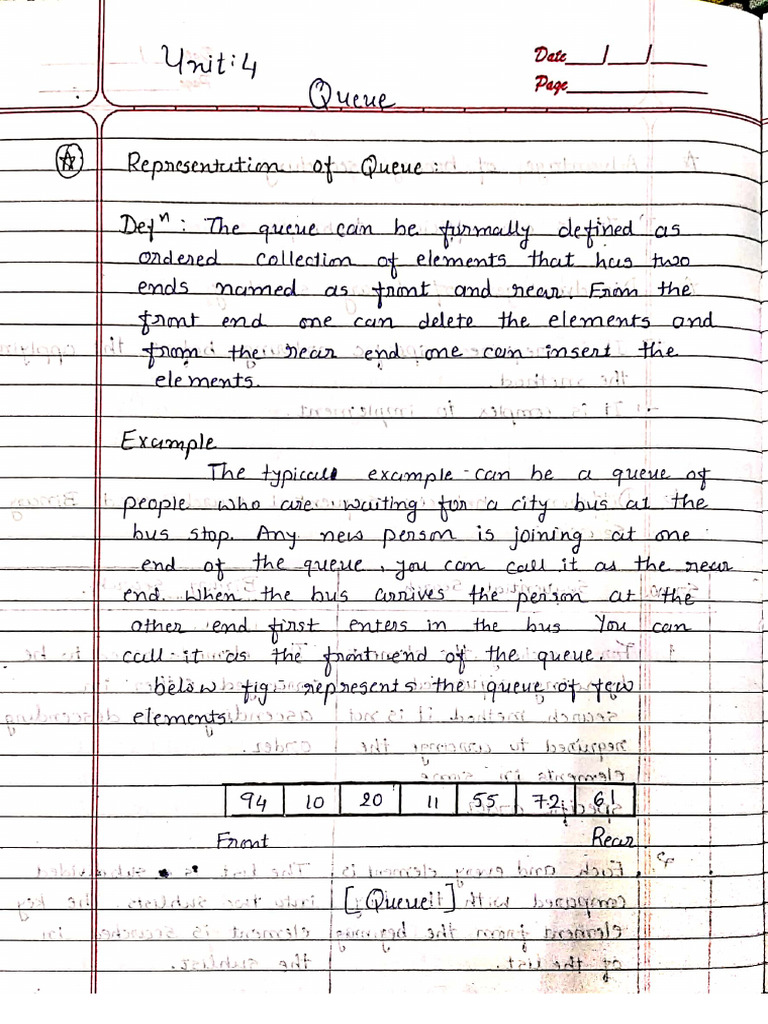 Unit:4
Date__/__/__
Page
Queue
Representation of Queue:
Defⁿ: The queue can be formally defined as
ordered collection of elements that has two
ends named as front and rear. From the
front end one can delete the elements and
from the rear end one can insert the
elements.
Example
The typical example can be a queue of
people who are waiting for a city bus at the
bus stop. Any new person is joining at one
end of the queue, you can call it as the rear
end. When the bus arrives the person at the
other end first enters in the bus You can
call it as the front end of the queue.
below fig represents the queue of few
elements.
94 10 20 11 55 72 61
Front Rear
[Queue]